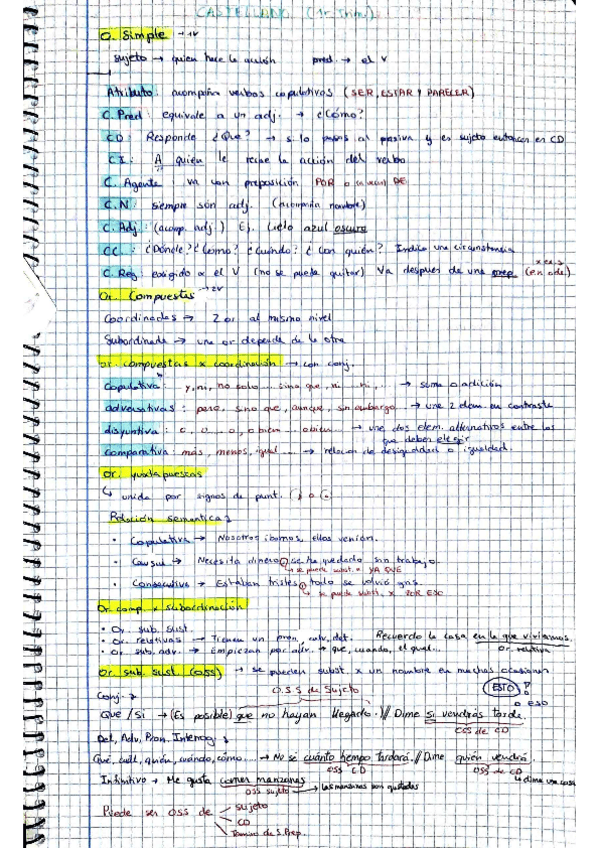 CASTELLANO (1r Trim)
O. Simple → 1V
Sujeto → quien hace la acción pred. → el V
Atributo: acompaña verbos copulativos (SER, ESTAR Y PARECER)
C. Pred: equivale a un adj. → ¿Cómo?
CD: Responde ¿Qué? → si lo pasas al pasiva y es sujeto entonces en CD
C I: A quien le recae la acción del verbo
C. Agente: va con preposición POR o DE
C.N: siempre són adj. (acompañan nombre)
C. Adj: (acomp. adj.) Ej. Cielo azul oscuro
CC: ¿Dónde? ¿Como? ¿Cuándo? ¿Con quién? Indica una circunstancia
C. Reg: exigido x el V (no se puede quitar) Va después de una prep.
Or. Compuestas → 2V
Coordinadas → 2 or al mismo nivel
Subordinada → una or depende de la otra
Or. compuestas x coordinación → con conj.
Copulativa: y, ni, no solo... sino que, ni... ni, ... → suma o adición
adversativas: pero, sino que, aunque, sin embargo... → une 2 elem. en contraste
disyuntiva: o, o... o, o bien... o bien... → une dos elem. alternativos entre los
que deben elegir
comparativa: más, menos, igual... → relación de desigualdad o igualdad.
Or. yuxtapuestas
↳ unida por signos de punt.
Relación semantica:
• Copulativa → Nosotros íbamos, ellas venían.
• Causal → Necesita dinero; se ha quedado sin trabajo.
→ se puede subst. x YA QUE
• Consecutiva → Estaban tristes; todo se volvió gris.
↳ se puede subst. x POR ESO
Or. comp. x subordinación
• Or. sub. sust.
• Or. relativas → Tienen un pron, adv, det. Recuerdo la casa en la que vivíamos.
or. relativa
• Or. sub. adv. → Empiezan por adv. → que, cuando, el qual...
Or. sub. sust. (OSS) → se pueden subst. x un nombre en muchas ocasiones
ESTO
o eso
Conj. →
O.S.S de Sujeto
Que / Si → (Es posible) que no hayan llegado. // Dime si vendrás tarde.
OSS de CD
Det, Adv, Pron. Interrog:
Qué, cuál, quién, cuándo, cómo... → No sé cuánto tiempo tardará. // Dime quién vendrá.
OSS CD OSS de CD
Infinitivo → Me gusta comer manzanas
OSS sujeto → las manzanas son gustadas
Puede ser OSS de
Sujeto
CD
Término de S. Prep.